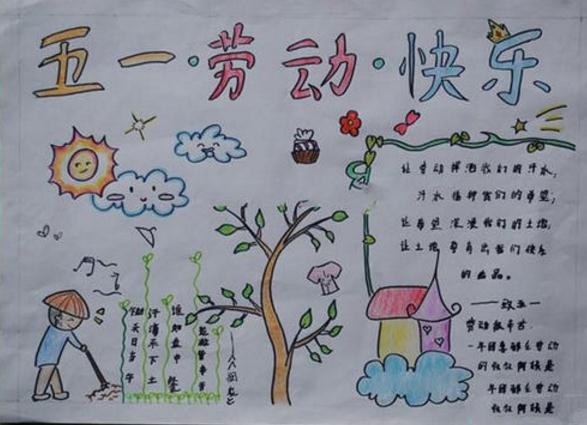 五一·劳动·快乐
让劳动挥洒我们的汗水,
汗水播种我们的希望;
让希望浸漫我们的土地,
让土地孕育出我们快乐
的作品。
——致五一
劳动最辛苦.
一年四季都在劳动
的叔叔阿姨是
一年四季都在劳动
叔叔阿姨是
锄禾日当午
汗滴禾下土
谁知盘中餐
粒粒皆辛苦